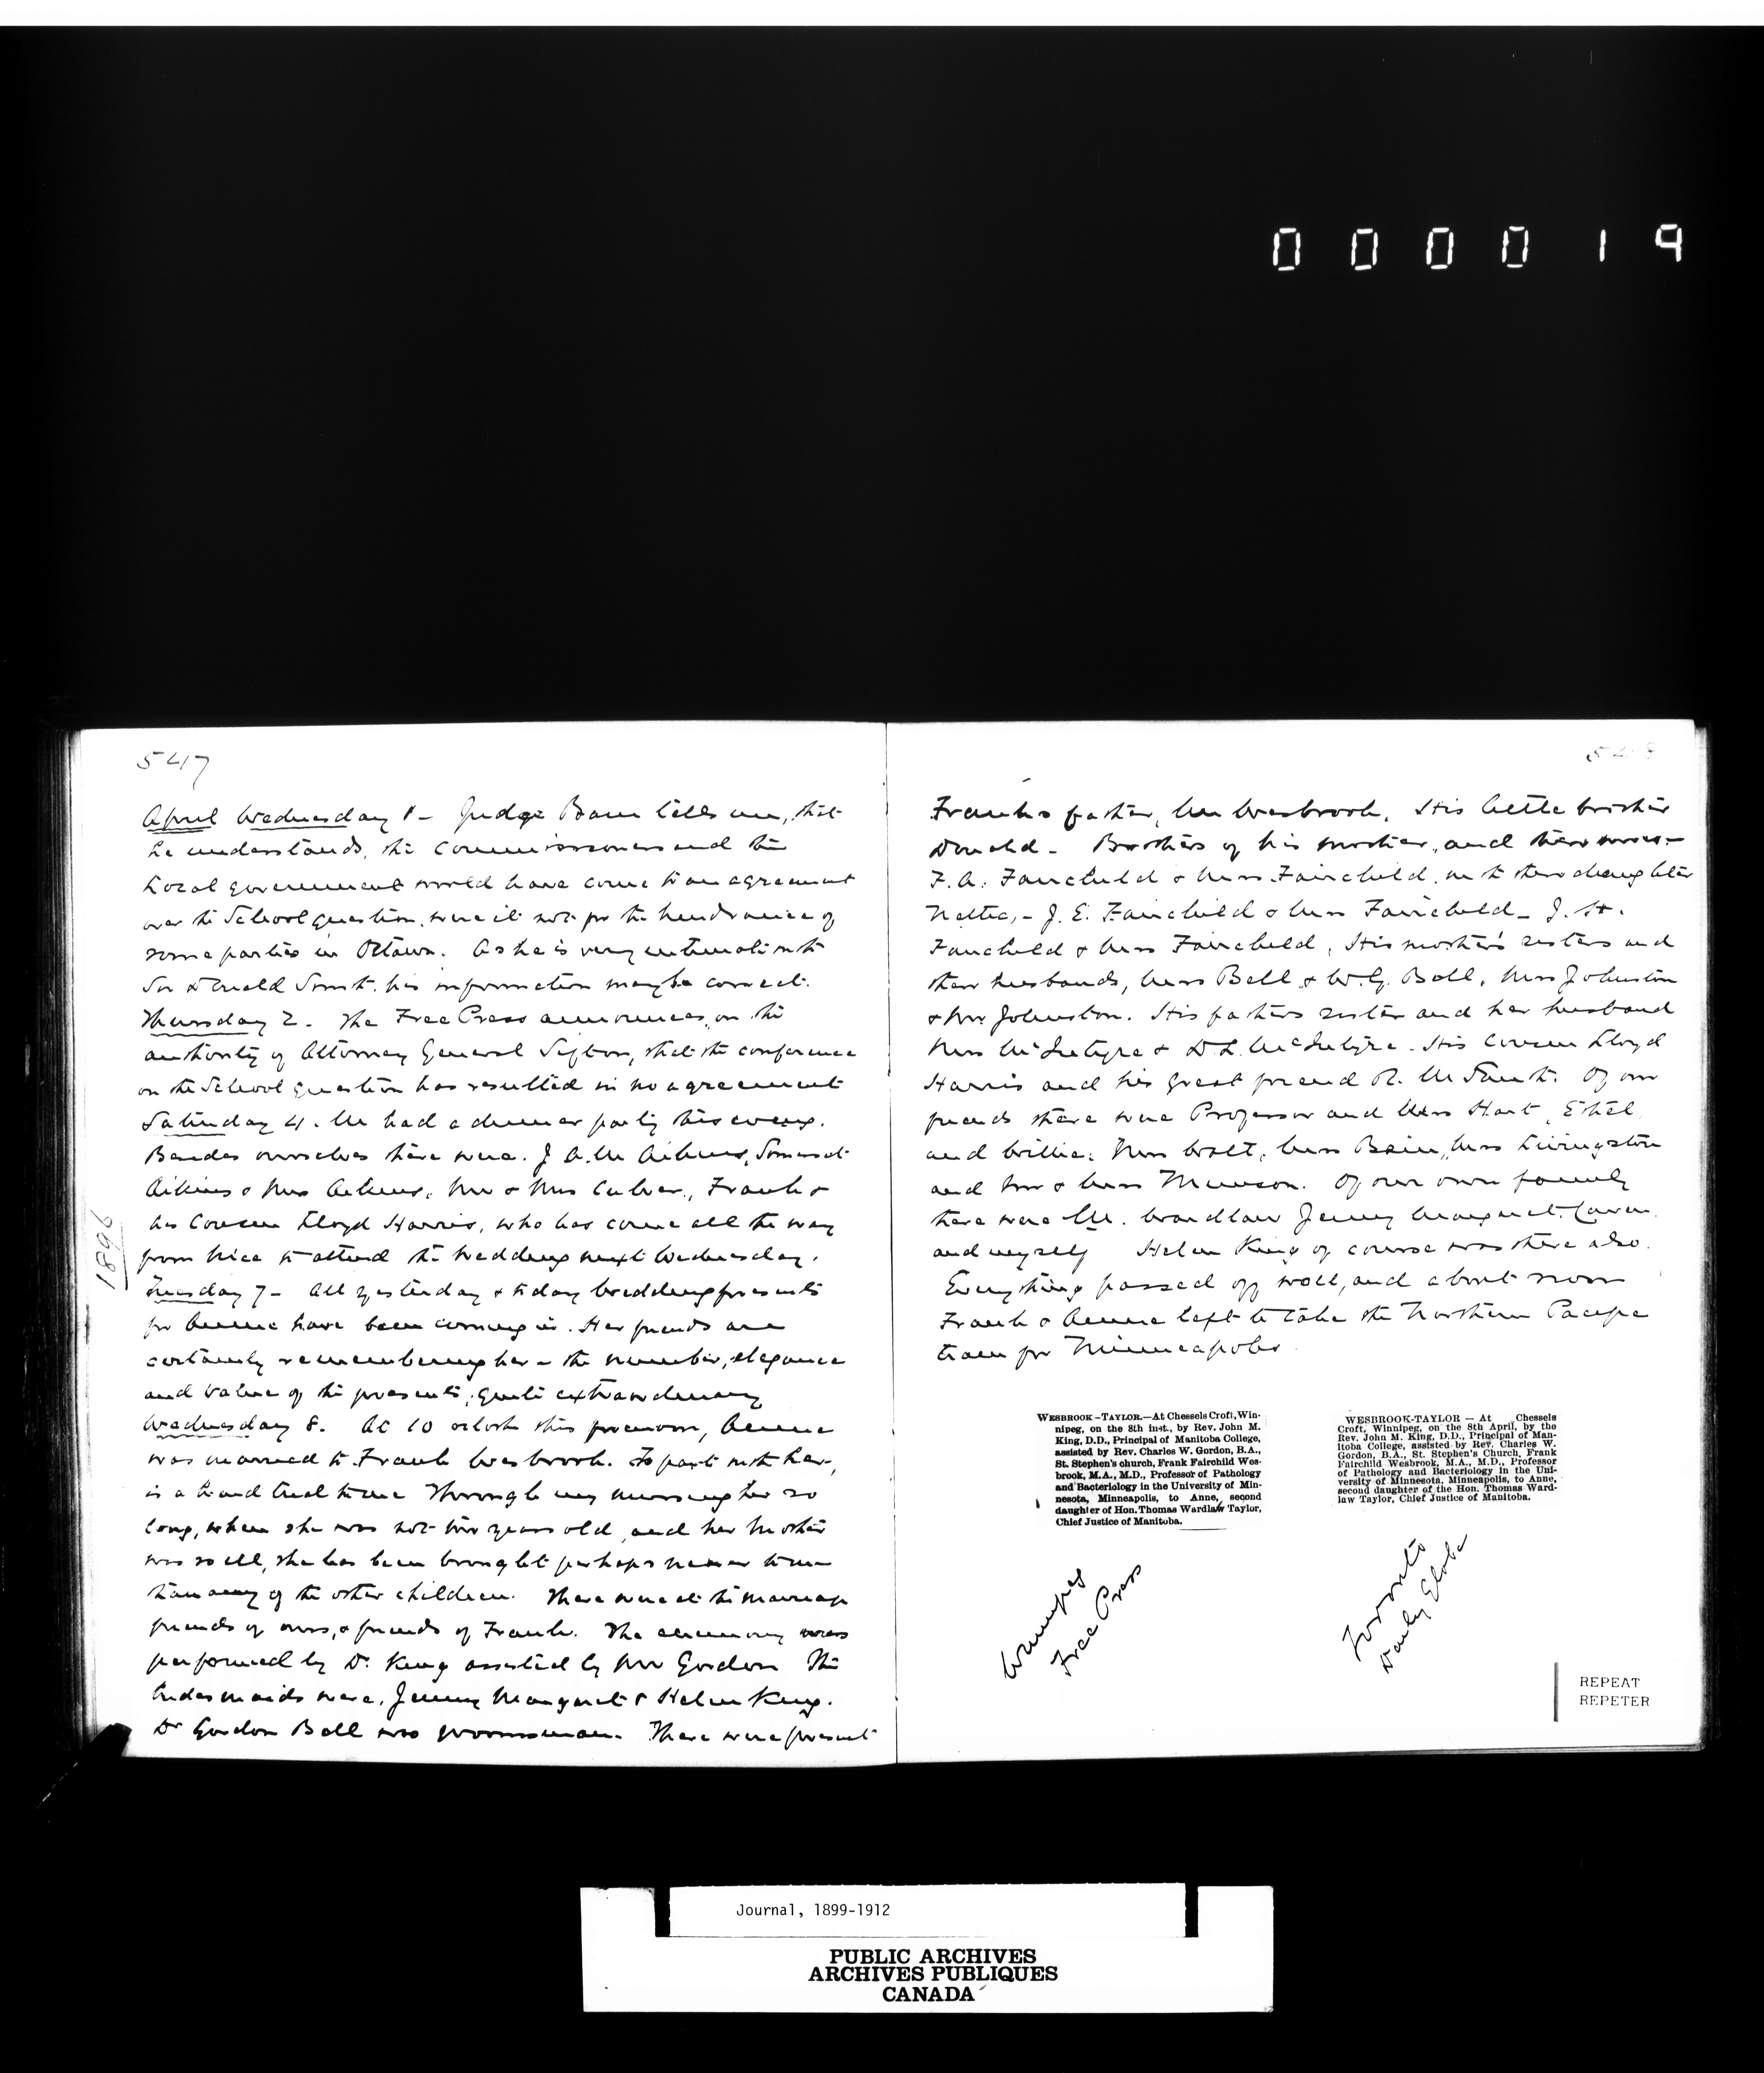 000019
547
April Wednesday 1 - Judge Bain tells me, that
he understands, the Commissioners and the
Local government would have come to an agreement
over the School question, were it not for the hindrance of
some parties in Ottawa. As he is very intimate with
Sir Donald Smith, his information may be correct.
Thursday 2. The Free Press announces, on the
authority of Attorney General Sifton, that the conference
on the School question has resulted in no agreement
Saturday 4. We had a dinner party this eveng.
Besides ourselves there were. J A. M Aikins, Somerset
Aikins & Mrs Aikins, Mr & Mrs Culver, Frank &
his Cousin Lloyd Harris, who has come all the way
from Nice to attend the wedding next Wednesday.
1896
Tuesday 7 - All yesterday & to day wedding presents
for Annie have been coming in. Her friends are
certainly remembering her - the number, elegance
and value of the presents, quite extraordinary
Wednesday 8. At 10 oclock this forenoon, Annie
was married to Frank Wesbrook. To part with her,
is a hard trial to me Through my nursing her so
long, when she was not two years old, and her Mother
was so ill, she has been brought perhaps nearer to me
than any of the other children. There were at the marriage
friends of ours, & friends of Frank. The ceremony was
performed by Dr. King assisted by Mr Gordon The
bridesmaids were, Jenny Margaret & Helen King.
Dr Gordon Bell was groomsman. There were present
548
Frank's father, Mr Wesbrook. His little brother
Donald - Brothers of his mother, and their wives -
F. A. Fairchild & Mrs. Fairchild, with their daughter
Nettie, - J. E. Fairchild & Mrs Fairchild - J. H.
Fairchild & Mrs Fairchild, His mother's sisters and
their husbands, Mrs Bell & W. G. Bell, Mrs Johnston
& Mr Johnston. His fathers sister and her husband
Mrs McIntyre & D. L. McIntyre. His Cousin Lloyd
Harris and his great friend R. M Smith. Of our
friends there were Professor and Mrs Hart, Ethel
and Willie. Mrs Watt, Mrs Bain, Mrs Livingston
and Mr & Mrs Munson. Of our own family
there were M. Wardlaw Jenny Margaret,
and myself Helen King of course was there also.
Everything passed off well, and about noon
Frank & Annie left to take the Northern Pacific
train for Minneapolis
WESBROOK-TAYLOR.—At Chessels Croft, Win-
nipeg, on the 8th inst., by Rev. John M.
King, D.D., Principal of Manitoba College,
assisted by Rev. Charles W. Gordon, B.A.,
St. Stephen's church, Frank Fairchild Wes-
brook, M.A., M.D., Professor of Pathology
and Bacteriology in the University of Min-
nesota, Minneapolis, to Anne, second
daughter of Hon. Thomas Wardlaw Taylor,
Chief Justice of Manitoba.
Winnipeg
Free Press
WESBROOK-TAYLOR — At Chessels
Croft, Winnipeg, on the 8th April, by the
Rev. John M. King, D.D., Principal of Man-
itoba College, assisted by Rev. Charles W.
Gordon, B.A., St. Stephen's Church, Frank
Fairchild Wesbrook, M.A., M.D., Professor
of Pathology and Bacteriology in the Uni-
versity of Minnesota, Minneapolis, to Anne,
second daughter of the Hon. Thomas Ward-
law Taylor, Chief Justice of Manitoba.
Toronto
Daily Globe
REPEAT
REPETER
Journal, 1899-1912
PUBLIC ARCHIVES
ARCHIVES PUBLIQUES
CANADA